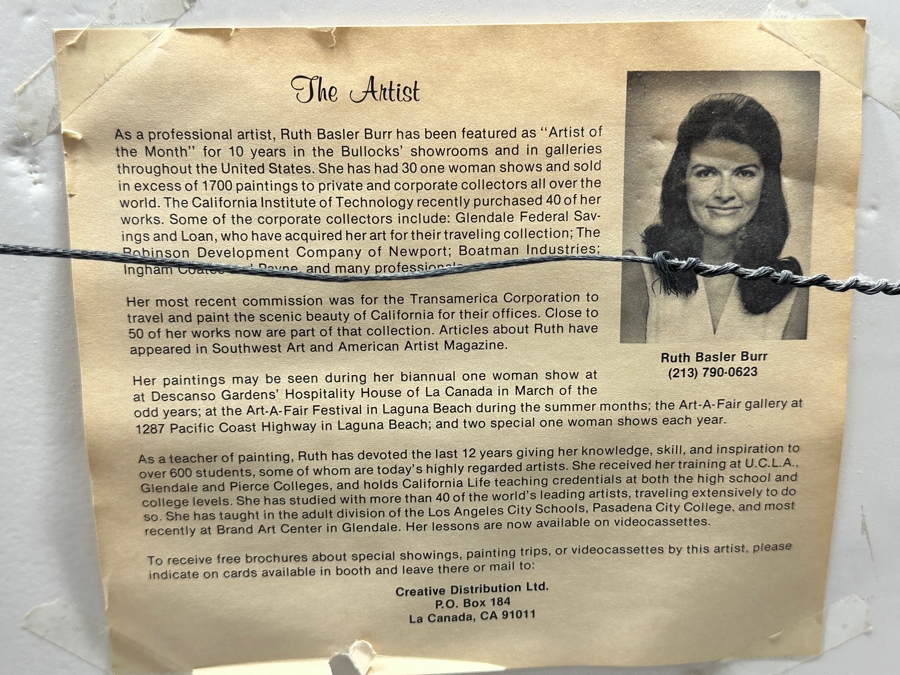 The Artist
As a professional artist, Ruth Basler Burr has been featured as "Artist of
the Month" for 10 years in the Bullocks' showrooms and in galleries
throughout the United States. She has had 30 one woman shows and sold
in excess of 1700 paintings to private and corporate collectors all over the
world. The California Institute of Technology recently purchased 40 of her
works. Some of the corporate collectors include: Glendale Federal Sav-
ings and Loan, who have acquired her art for their traveling collection; The
Robinson Development Company of Newport; Boatman Industries;
Ingham Coates and Payne, and many professionals.
Her most recent commission was for the Transamerica Corporation to
travel and paint the scenic beauty of California for their offices. Close to
50 of her works now are part of that collection. Articles about Ruth have
appeared in Southwest Art and American Artist Magazine.
Ruth Basler Burr
(213) 790-0623
Her paintings may be seen during her biannual one woman show at
at Descanso Gardens' Hospitality House of La Canada in March of the
odd years; at the Art-A-Fair Festival in Laguna Beach during the summer months; the Art-A-Fair gallery at
1287 Pacific Coast Highway in Laguna Beach; and two special one woman shows each year.
As a teacher of painting, Ruth has devoted the last 12 years giving her knowledge, skill, and inspiration to
over 600 students, some of whom are today's highly regarded artists. She received her training at U.C.L.A.,
Glendale and Pierce Colleges, and holds California Life teaching credentials at both the high school and
college levels. She has studied with more than 40 of the world's leading artists, traveling extensively to do
so. She has taught in the adult division of the Los Angeles City Schools, Pasadena City College, and most
recently at Brand Art Center in Glendale. Her lessons are now available on videocassettes.
To receive free brochures about special showings, painting trips, or videocassettes by this artist, please
indicate on cards available in booth and leave there or mail to:
Creative Distribution Ltd.
P.O. Box 184
La Canada, CA 91011